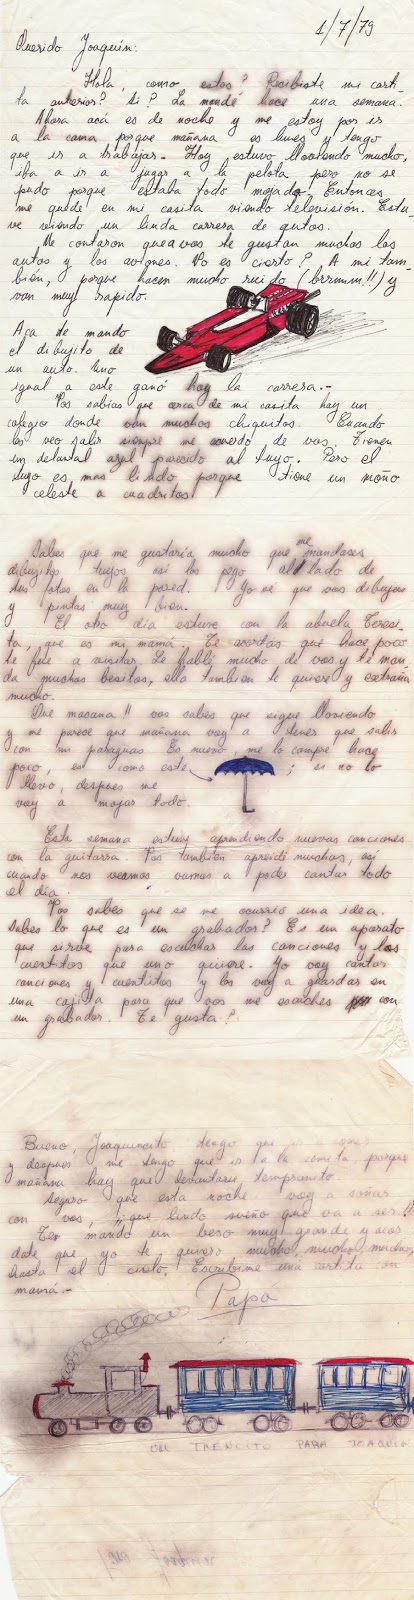 1/7/79
Querido Joaquín:
Hola, como estas? Recibiste mi carti-
ta anterior? Si? La mandé hace una semana.
Ahora acá es de noche y me estoy por ir
a la cama porque mañana es lunes y tengo
que ir a trabajar. Hoy estuvo lloviendo mucho,
iba a ir a jugar a la pelota pero no se
pudo porque estaba todo mojado. Entonces
me quede en mi casita viendo televisión. Estu-
ve viendo un linda carrera de autos.
Me contaron que a vos te gustan muchos los
autos y los aviones. Vo es cierto? A mi tam-
bién, porque hacen mucho ruido (brrmmm!!) y
van muy rapido.
Aca te mando
el dibujito de
un auto. Uno
igual a este ganó hoy la carrera.-
Vos sabias que cerca de mi casita hay un
colegio donde van muchos chiquitos. Cuando
los veo salir siempre me acuerdo de vos. Tienen
un delantal azul parecido al tuyo. Pero el
tuyo es mas lindo porque tiene un moño
celeste a cuadritos
Sabes que me gustaria mucho que me mandases
dibujitos tuyos asi los pego al lado de
tus fotos en la pared. Yo sé que vos dibujas
y pintas muy bien.
El otro dia estuve con la abuela Teresi-
ta, que es mi mamá. Te acordas que hace poco
te fue a visitar. Le hablé mucho de vos y te man-
da muchos besitos, ella tambien te quiere y extraña
mucho.
Que macana!! vos sabes que sigue lloviendo
y me parece que mañana voy a tener que salir
con mi paraguas. Es nuevo, me lo compre hace
poco, es como este ; si no lo
llevo, despues me
voy a mojar todo.
Esta semana estuve aprendiendo nuevas canciones
con la guitarra. Vos también aprendé muchas, asi
cuando nos veamos vamos a poder cantar todo
el dia.
Vos sabes que se me ocurrió una idea.
Sabes lo que es un grabador? Es un aparato
que sirve para escuchar las canciones y los
cuentitos que uno quiere. Yo voy cantar
canciones y cuentitos y los voy a guardar en
una cajita para que vos me escuches con
un grabador. Te gusta?
Bueno, Joaquincito tengo que ir a comer
y despues me tengo que ir a la camita, porque
mañana hay que levantarse tempranito.
Seguro que esta noche voy a soñar
con vos, ¡¡que lindo sueño que va a ser!!
Te mando un beso muy grande y acor-
date que yo te quiero mucho, mucho, mucho,
hasta el cielo. Escribime una cartita con
mamá.-
Papá
UN TRENCITO PARA JOAQUIN